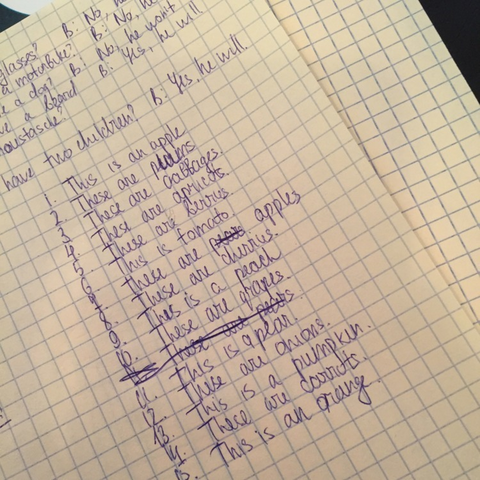 glasses? B: No, he
a motorbike? B: No, he
a dog? B: No, he won't
a beard B: Yes, he will
moustasche?
have two children? B: Yes, he will.
1. This is an apple
2. These are plums
3. These are cabbages.
4. These are apricots.
5. These are berries
6. This is tomato
7. These are apples
8. These are cherrus.
9. This is a peach
10. These are grapes.
These are pears.
11. This is a pear.
12. These are onions.
13. This is a pumpkin.
14. These are corrots.
15. This is an orange.